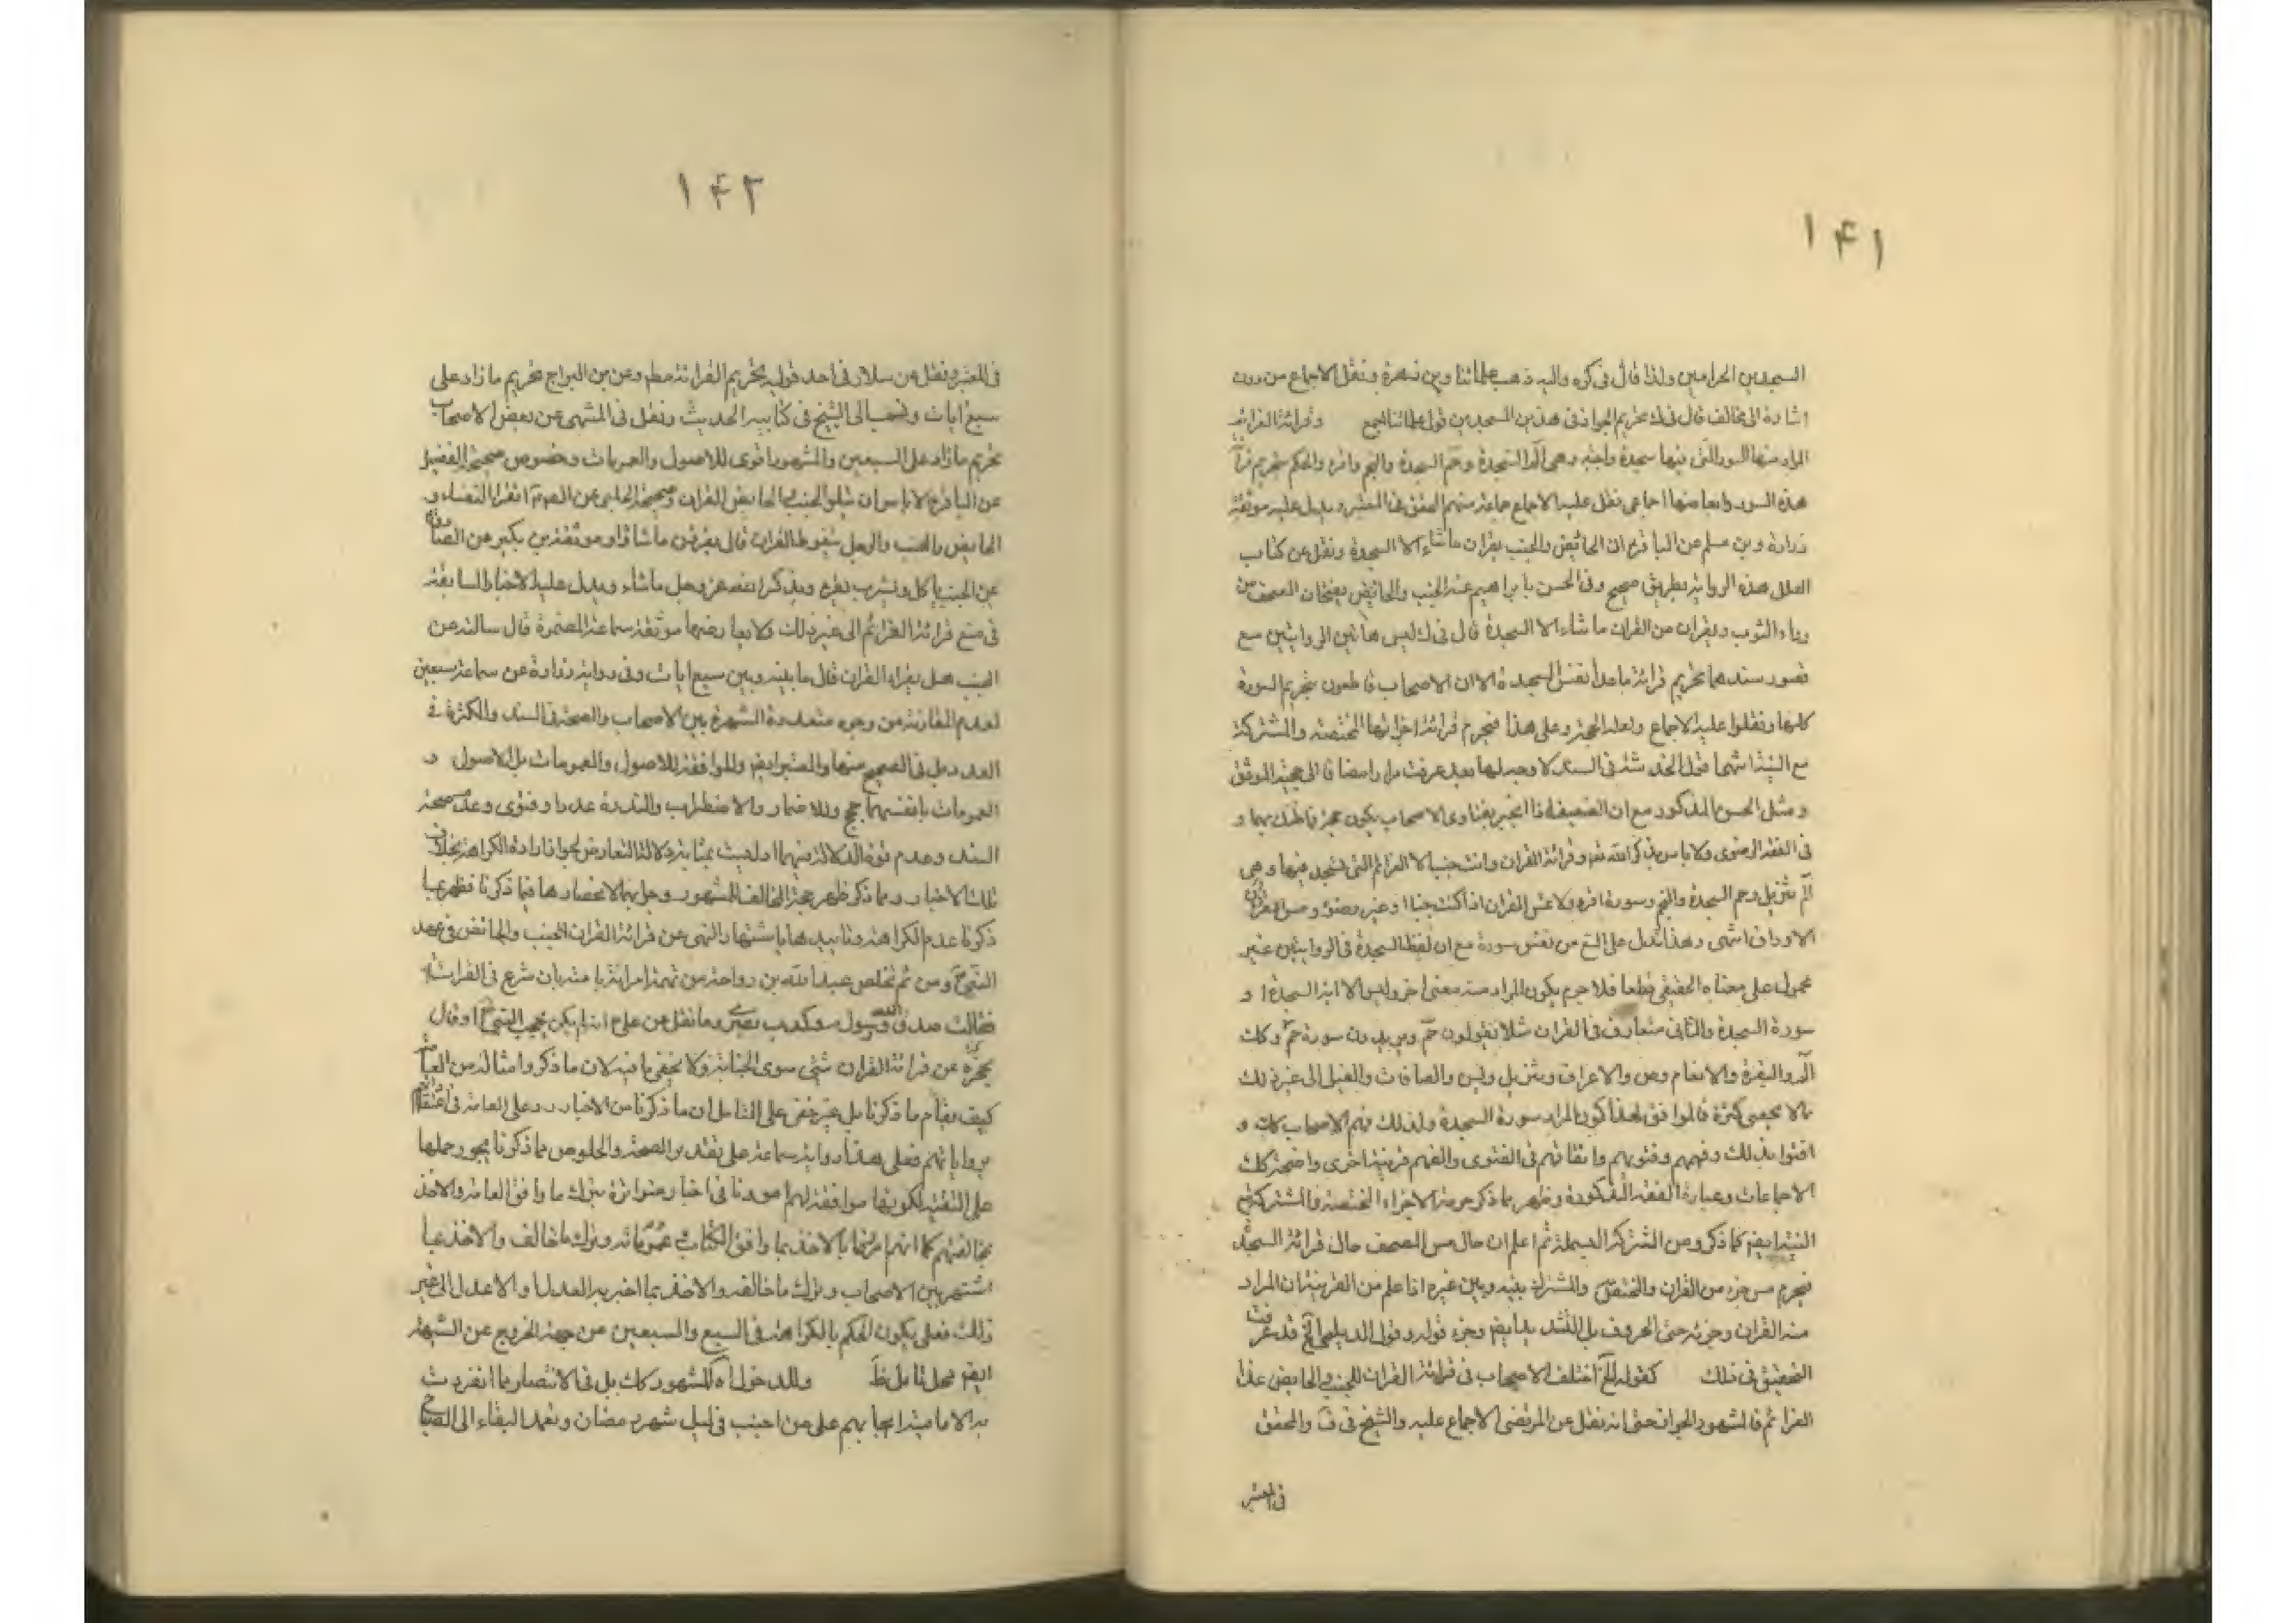 ١٤١
المسجدين الحرامين ولذا قال فى كره واليه ذهب علمائنا وبن زهرة ونقل الاجماع من دون
اشارة الى مخالف قال فى ك تحريم الجواز فى هذين المسجدين قول علمائنا اجمع وقرائة العزائم
المراد منها السور التى فيها سجدة واجبة وهى الم السجدة وحم السجدة والنجم واقرء والحكم بتحريم قرائة
هذه السور وابعاضها اجماعى نقل عليه الاجماع جماعة منهم المحقق فى المعتبر ويدل عليه موثقة
زرارة وبن مسلم عن الباقر ع ان الحائض والجنب يقران ما شاء الا السجدة ونقل عن كتاب
العلل هذه الرواية بطريق صحيح وفى الحسن بابراهيم عنه الجنب والحائض يفتحان المصحف من
وراء الثوب ويقران من القران ما شاء الا السجدة قال فى ك ليس هاتين الروايتين مع
قصور سندهما تحريم قرائة ما عدا نفس السجدة الا ان الاصحاب قاطعون بتحريم السورة
كلها ونقلوا عليه الاجماع ولعله الحجة وعلى هذا فيحرم قرائة اجزائها المختصة والمشتركة
مع النية انتهى اقول الخدشة فى السند لا وجه لها بعد عرفت مرارا مضافا الى حجية الموثق
ومثل الحسن المذكور مع ان الضعيف اذا انجبر بفتاوى الاصحاب يكون حجة فاظنك بهما و
فى الفقه الرضوى ولا باس بذكر الله تع وقرائة القران وانت جنب الا العزائم التى تسجد فيها وهى
الم تنزيل وحم السجدة والنجم وسورة اقرء ولا تمس القران اذا كنت جنبا او غير وضوء ومس
الاوراق انتهى وهذا تدل على المنع من نفس سورة مع ان لفظ السجدة فى الروايتين غير
محمول على معناه الحقيقى قطعا فلا جرم يكون المراد منه معنى اخر وليس الا اية السجدة او
سورة السجدة والثانى متعارف فى القران مثلا يقولون حم ويريدون سورة حم وكك
الم والبقرة والانعام وص والاعراف وتنزيل ويس والصافات والفيل الى غير ذلك
مما لا يحصى كثرة فالموافق لهذا كون المراد سورة السجدة ولذلك فهم الاصحاب كك و
افتوا بذلك وفهمهم وفتويهم واتفاقهم فى الفتوى والفهم قرينة اخرى واضحة كك
الاجماعات وعبارة الفقه المذكورة وظهر مما ذكر حرمة الاجزاء المختصة والمشتركة مع
النية ايض كما ذكر ومن المشترك البسملة ثم اعلم ان حال مس المصحف حال قرائة السجدة
فيحرم مس جزء من القران والمختص والمشترك بينه وبين غيره اذا علم من القرينة ان المراد
منه القران وجزئه حتى الحروف بل التشديد ايض وجزء قوله وقول الديلمى الخ قد عرفت
التحقيق فى ذلك كقوله الخ اختلف الاصحاب فى قرائة القران للجنب والحايض عدا
العزائم فالمشهور الجواز حتى انه نقل عن المرتضى الاجماع عليه والشيخ فى ف والمحقق
فى المعتبر
١٤٢
فى المعتبر ونقل عن سلار فى احد قوليه تحريم القرائة مطم وعن بن البراج تحريم ما زاد على
سبع ايات ونسب الى الشيخ فى كتابيه الحديث ونقل فى المنتهى عن بعض الاصحاب
تحريم ما زاد على السبعين والمشهور اقوى للاصول والعمومات وخصوص صحيحة الفضيل
عن الباقر ع لا باس ان تتلو الجنب والحايض القران وصحيحة الحلبى عن الصم اتقرا النفساء و
الحايض والجنب والرجل يتغوط القران قال يقرئن ما شاؤا وموثقة بن بكير عن الصادق
عن الجنب ياكل ويشرب يقرء ويذكر الله عز وجل ما شاء ويدل عليه الاخبار السابقة
فى منع قرائة العزائم الى غير ذلك ولا يعارضها موثقة سماعة المضمرة قال سالته عن
الجنب هل يقراء القران قال ما بينه وبين سبع ايات وفى رواية زرارة عن سماعة سبعين
لعدم المقاومة من وجوه متعددة الشهرة بين الاصحاب والصحة فى السند والكثرة فى
العدد بل فى الصحيح منها والمعتبر ايض والموافقة للاصول والعمومات بل الاصول و
العمومات بانفسهما حجج وللاضمار والاضطراب والندرة عددا وفتوى وعدم صحة
السند وعدم قوة الدلالة فيهما اذ ليست بمثابة دلالة التعارض لجواز ارادة الكراهة بخلاف
تلك الاخبار ومما ذكر ظهر حجة المخالف للمشهور وجوابها لانحصارها فيما ذكرنا فظهر بما
ذكرنا عدم الكراهة وتاييدها باشتهار النهى عن قرائة القران للجنب والحائض فى عهد
النبى ص ومن ثم تخلص عبد الله بن رواحة من تهمة امراته بان شرع فى القرائة
فقالت صدق الله ورسوله وكذب بصرى وما نقل عن على ع انه لم يكن يحجب النبى ص او قال
يحجزه عن قرائة القران شئ سوى الجنابة ولا يخفى ما فيه لان ما ذكر وامثاله من العامة
كيف يقاوم ما ذكرنا بل غير خفى على المتامل ان ما ذكرنا من الاخبار رد على العامة فى اعتقادهم
برواياتهم فعلى هذا رواية سماعة على تقدير الصحة والخلوص مما ذكرنا يجوز حملها
على التقية لكونها موافقة لهم امورنا فى اخبار متواترة بترك ما وافق العامة والاخذ
بمخالفتهم كما انهم امرونا بالاخذ بما وافق الكتاب عموماته وترك ما خالف والاخذ بما
اشتهر بين الاصحاب وترك ما خالفه والاخذ بما اخبر به العدل والاعدل الى غير
ذلك فعلى يكون الحكم بالكراهة فى السبع والسبعين من جهة الخروج عن الشبهة
ايض محل تامل ظ وللدخول اه المشهور كك بل فى الانتصار مما انفردت
به الامامية ايجابهم على من اجنب فى ليل شهر رمضان وتعمد البقاء الى الصباح